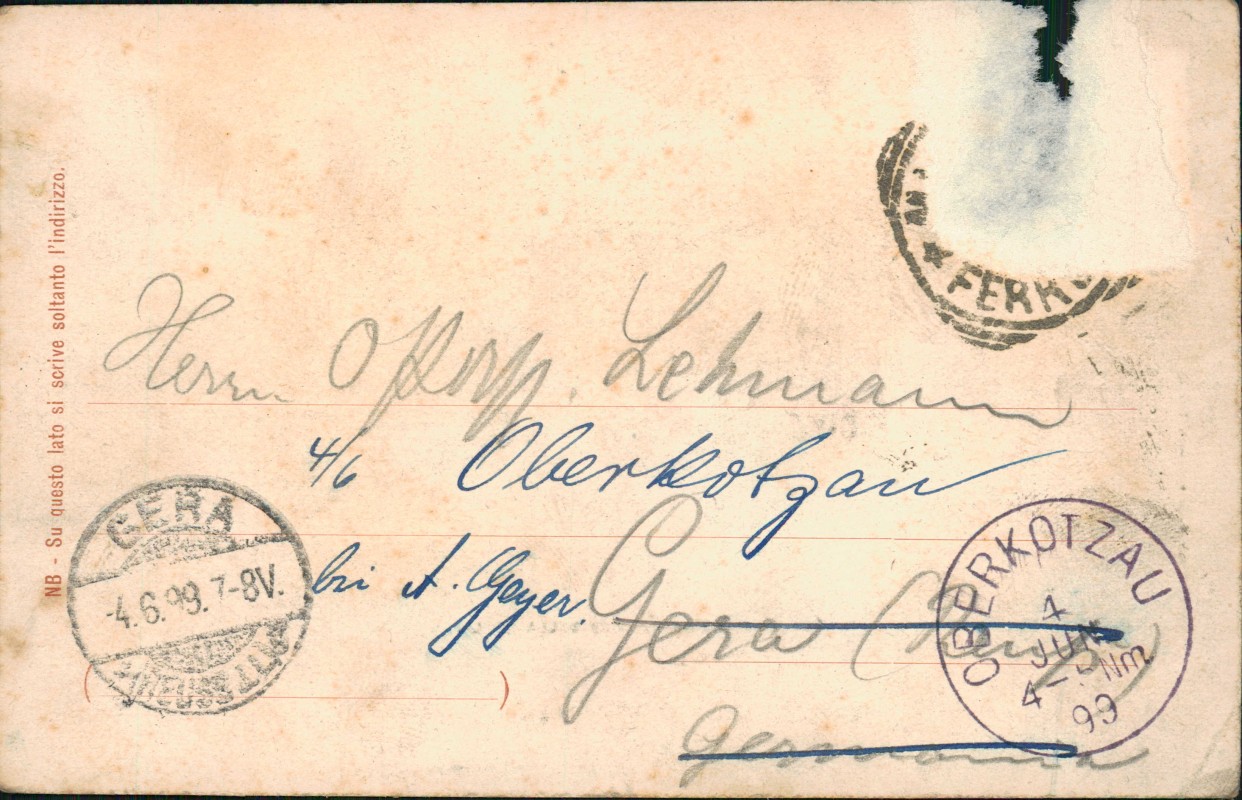 NB - Su questo lato si scrive soltanto l'indirizzo.
★ FERR
Herrn Lehmann
4/6 Oberkotzau
bei A. Geyer.
Gera (Reuß)
Germania
GERA
-4.6.99. 7-8V.
OBERKOTZAU
4
JUN
4-5Nm
99